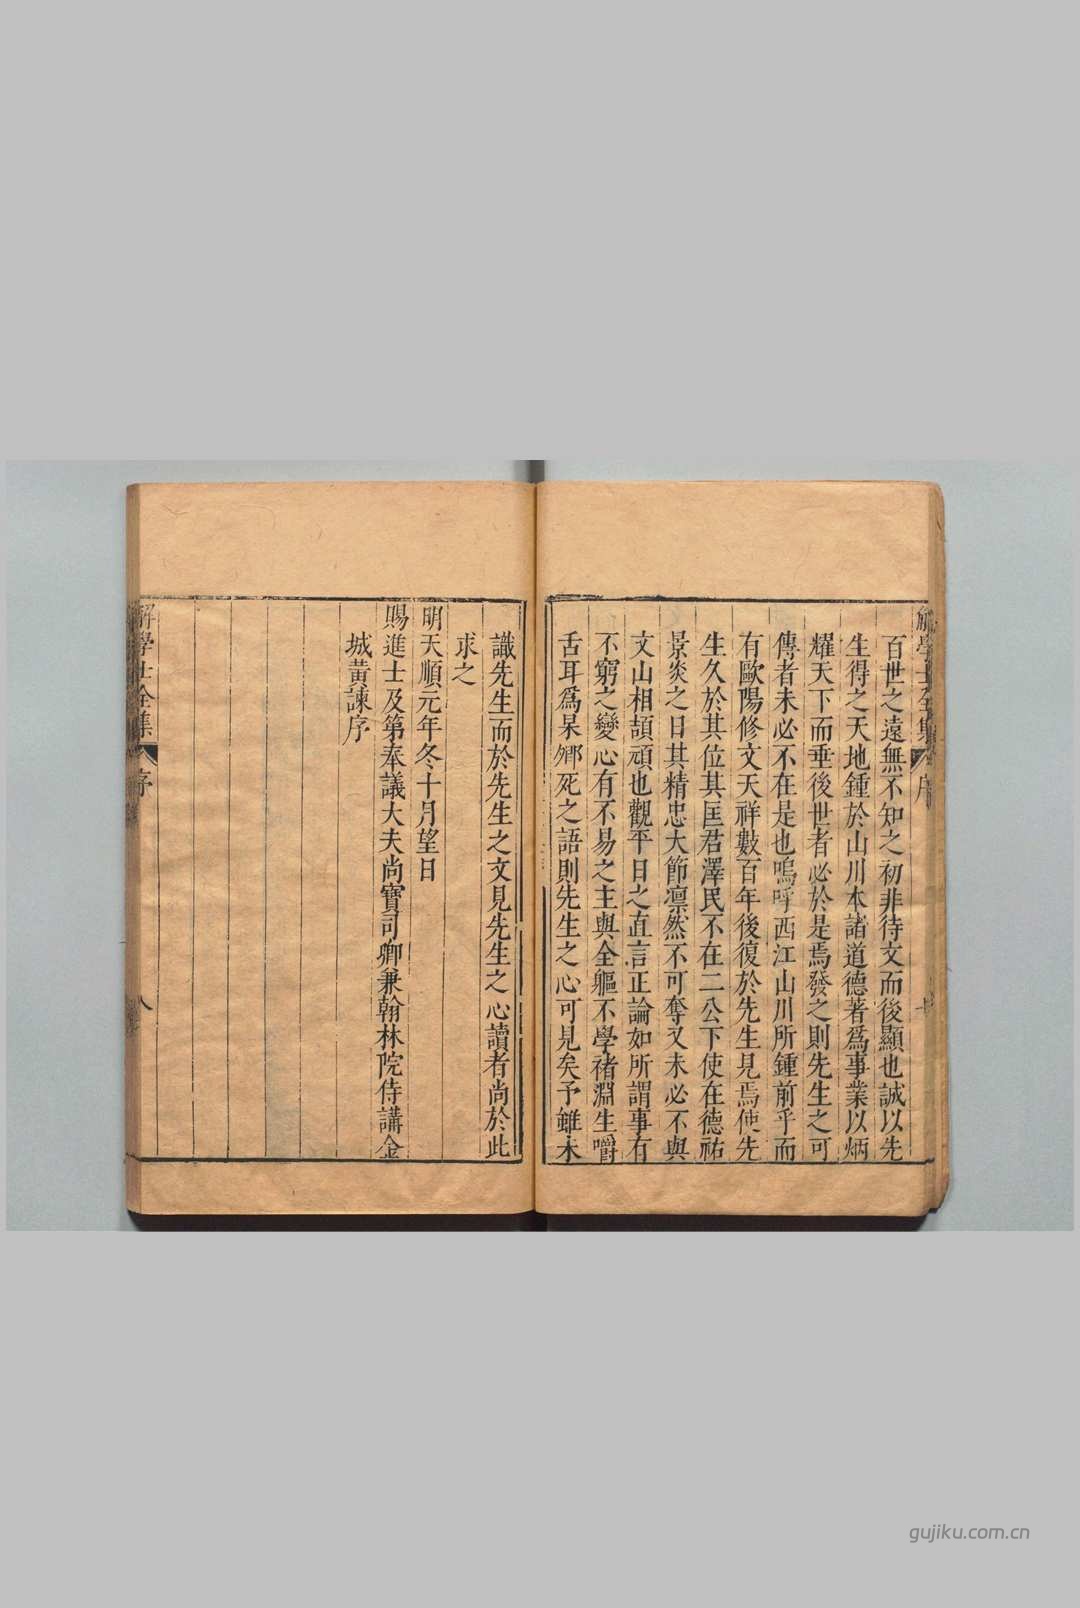 百世之遠無不知之初非待文而後顯也誠以先
生得之天地鍾於山川本諸道德著爲事業以炳
耀天下而垂後世者必於是焉發之則先生之可
傳者未必不在是也嗚呼西江山川所鍾前乎而
有歐陽修文天祥數百年後復於先生見焉使先
生久於其位其匡君澤民不在二公下使在德祐
景炎之日其精忠大節凛然不可奪又未必不與
文山相頡頏也觀平日之直言正論如所謂事有
不窮之變心有不易之主與全軀不學褚淵生嚼
舌耳爲杲卿死之語則先生之心可見矣予雖未
識先生而於先生之文見先生之心讀者尚於此
求之
明天順元年冬十月望日
賜進士及第奉議大夫尚寶司卿兼翰林院侍講金
城黃諫序
解學士全集
序
八
gujiku.com.cn